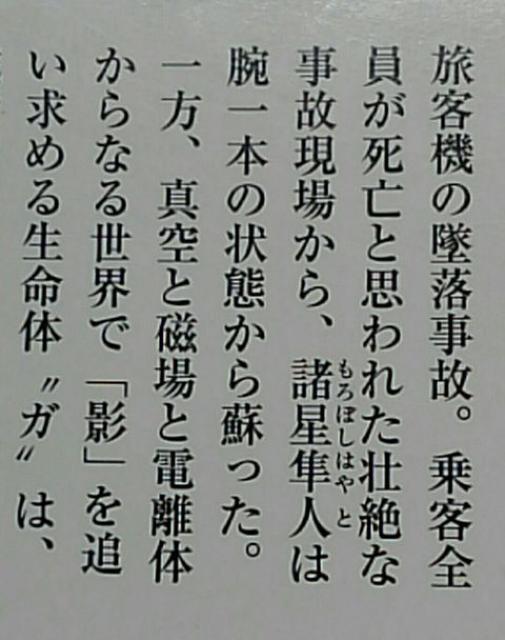 旅客機の墜落事故。乗客全
員が死亡と思われた壮絶な
事故現場から、諸星隼人は
もろぼしはやと
腕一本の状態から蘇った。
一方、真空と磁場と電離体
からなる世界で「影」を追
い求める生命体〝ガ〟は、